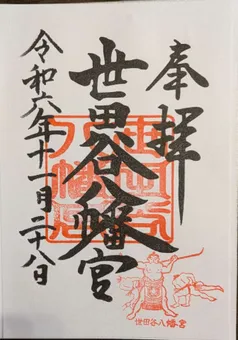 奉拝
世田谷八幡宮
令和六年十一月二十八日
世田谷八幡宮
世田谷八幡宮